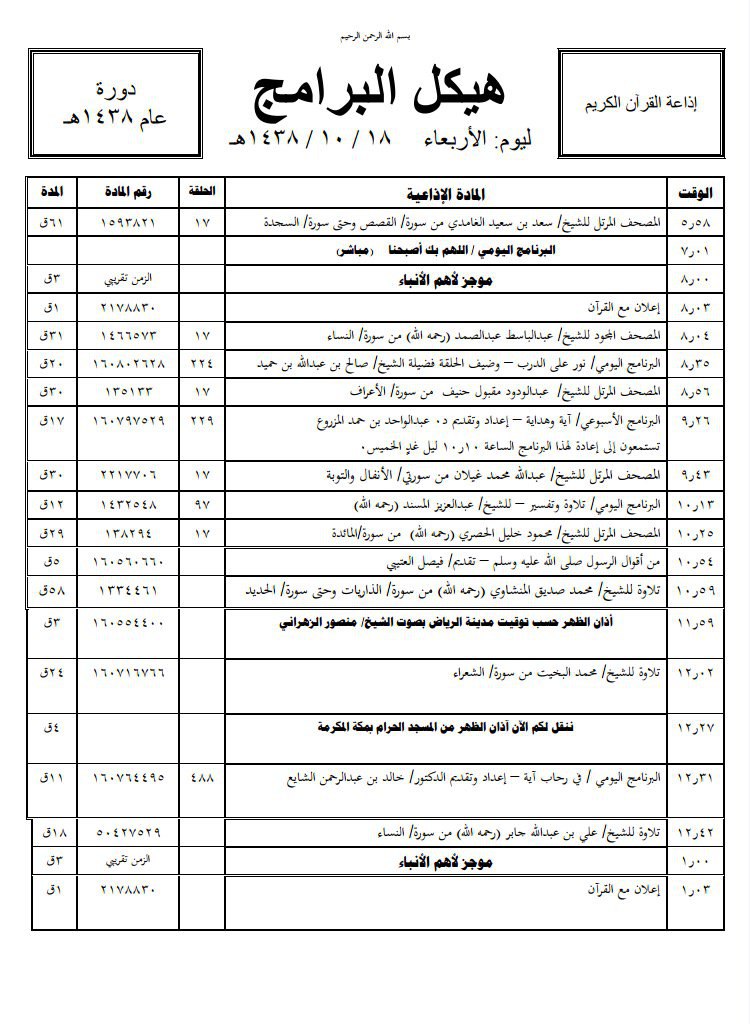 بسم الله الرحمن الرحيم
إذاعة القرآن الكريم
هيكل البرامج
ليوم: الأربعاء ١٨ / ١٠ / ١٤٣٨هـ
دورة
عام ١٤٣٨هـ
الوقت المادة الإذاعية الحلقة رقم المادة المدة
٥٫٥٨ المصحف المرتل للشيخ/ سعد بن سعيد الغامدي من سورة/ القصص وحتى سورة/ السجدة ١٧ ١٥٩٣٨٢١ ٦١ق
٧٫٠١ البرنامج اليومي / اللهم بك أصبحنا (مباشر)
٨٫٠٠ موجز لأهم الأنباء الزمن تقريبي ٣ق
٨٫٠٣ إعلان مع القرآن ٢١٧٨٨٣٠ ١ق
٨٫٠٤ المصحف المجود للشيخ/ عبدالباسط عبدالصمد (رحمه الله) من سورة/ النساء ١٧ ١٤٦٦٥٧٣ ٣١ق
٨٫٣٥ البرنامج اليومي/ نور على الدرب – وضيف الحلقة فضيلة الشيخ/ صالح بن عبدالله بن حميد ٢٢٤ ١٦٠٨٠٢٦٢٨ ٢٠ق
٨٫٥٦ المصحف المرتل للشيخ/ عبدالودود مقبول حنيف من سورة/ الأعراف ١٧ ١٣٥١٣٣ ٣٠ق
٩٫٢٦ البرنامج الأسبوعي/ آية وهداية – إعداد وتقديم د٠ عبدالواحد بن حمد المزروع ٢٢٩ ١٦٠٧٩٧٥٢٩ ١٧ق
تستمعون إلى إعادة لهذا البرنامج الساعة ١٠٫١٠ ليل غدٍ الخميس٠
٩٫٤٣ المصحف المرتل للشيخ/ عبدالله محمد غيلان من سورتي/ الأنفال والتوبة ١٧ ٢٢١٧٧٠٦ ٣٠ق
١٠٫١٣ البرنامج اليومي/ تلاوة وتفسير – للشيخ/ عبدالعزيز المسند (رحمه الله) ٩٧ ١٤٣٢٥٤٨ ١٢ق
١٠٫٢٥ المصحف المرتل للشيخ/ محمود خليل الحصري (رحمه الله) من سورة/المائدة ١٧ ١٣٨٢٩٤ ٢٩ق
١٠٫٥٤ من أقوال الرسول صلى الله عليه وسلم – تقديم/ فيصل العتيبي ١٦٠٥٦٠٦٦٠ ٥ق
١٠٫٥٩ تلاوة للشيخ/ محمد صديق المنشاوي (رحمه الله) من سورة/ الذاريات وحتى سورة/ الحديد ١٣٣٤٤٦١ ٥٨ق
١١٫٥٩ أذان الظهر حسب توقيت مدينة الرياض بصوت الشيخ/ منصور الزهراني ١٦٠٥٥٤٤٠٠ ٣ق
١٢٫٠٢ تلاوة للشيخ/ محمد البخيت من سورة/ الشعراء ١٦٠٧١٦٧٦٦ ٢٤ق
١٢٫٢٧ ننقل لكم الآن أذان الظهر من المسجد الحرام بمكة المكرمة ٤ق
١٢٫٣١ البرنامج اليومي / في رحاب آية – إعداد وتقديم الدكتور/ خالد بن عبدالرحمن الشايع ٤٨٨ ١٦٠٧٦٤٤٩٥ ١١ق
١٢٫٤٢ تلاوة للشيخ/ علي بن عبدالله جابر (رحمه الله) من سورة/ النساء ٥٠٤٢٧٥٢٩ ١٨ق
١٫٠٠ موجز لأهم الأنباء الزمن تقريبي ٣ق
١٫٠٣ إعلان مع القرآن ٢١٧٨٨٣٠ ١ق